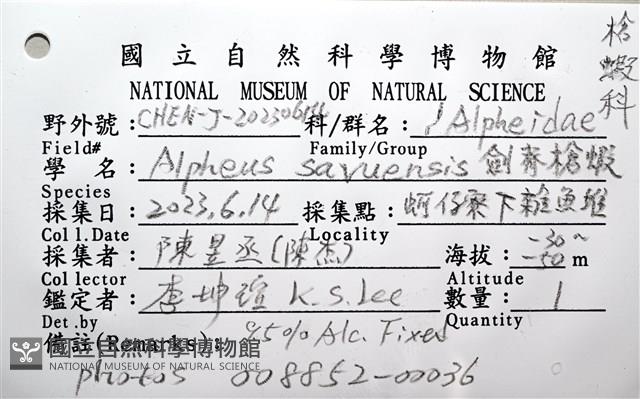 槍蝦科
國立自然科學博物館
NATIONAL MUSEUM OF NATURAL SCIENCE
野外號：CHEN-J-20230614 科/群名：Alpheidae
Field# Family/Group
學 名：Alpheus savuensis 劍脊槍蝦
Species
採集日：2023.6.14 採集點：蚵仔寮下雜魚堆
Coll.Date Locality
採集者：陳昱丞(陳杰) 海拔：-30~-50m
Collector Altitude
鑑定者：李坤瑄 K.S.Lee 數量：1
Det.by Quantity
備註(Remarks)：95% Alc. Fixed
國立自然科學博物館
NATIONAL MUSEUM OF NATURAL SCIENCE
photos 008852-00036